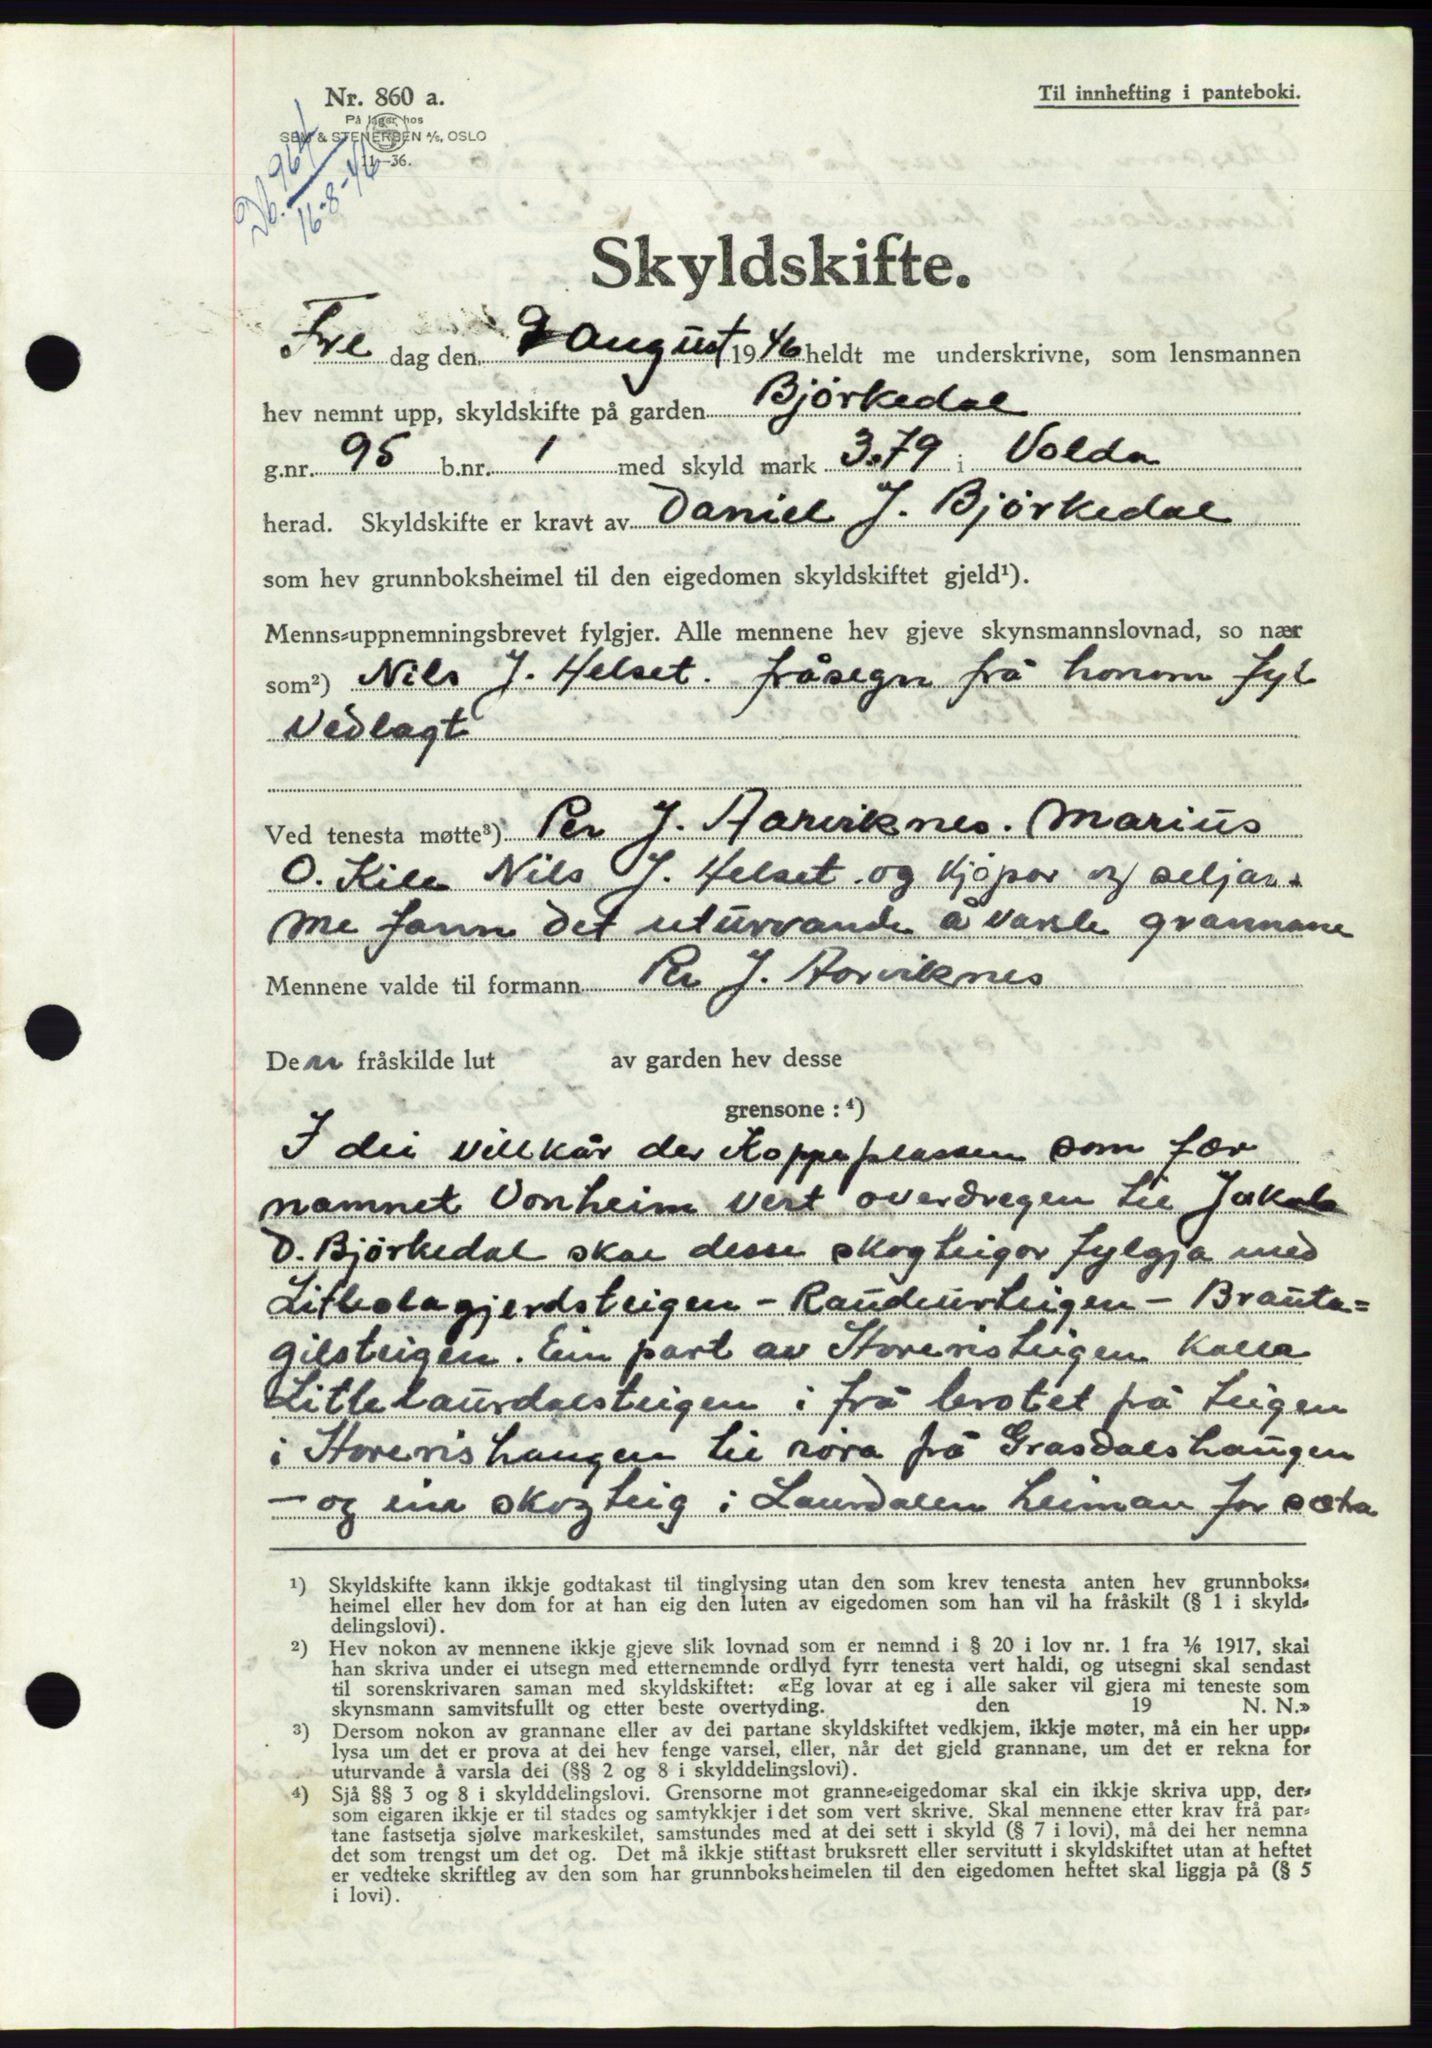 Nr. 860 a.
Til innhefting i panteboki.
På lager hos
SEM & STENERSEN A/S, OSLO
11-36.
Db. 964/
16-8-46
Skyldskifte.
Fre dag den 9 august 1946 heldt me underskrivne, som lensmannen
hev nemnt upp, skyldskifte på garden Bjørkedal
g.nr. 95 b.nr. 1 med skyld mark 3.79 i Volda
herad. Skyldskifte er kravt av Daniel J. Bjørkedal
som hev grunnboksheimel til den eigedomen skyldskiftet gjeld¹).
Menns-uppnemningsbrevet fylgjer. Alle mennene hev gjeve skynsmannslovnad, so nær
som²) Nils J. Helset. fråsegn frå honom fyl
Vedlagt
Ved tenesta møtte³) Per J. Aarviknes. Marius
O. Kile Nils J. Helset. og Kjøpar og seljar.
Me fann det uturvande å varsle grannane
Mennene valde til formann Per J. Aarviknes
Den fråskilde lut av garden hev desse
grensone:⁴)
I dei villkår der Koppeplassen som fær
namnet Vonheim vert overdregen til Jakob
D. Bjørkedal skal desse skogteigar fylgja med
Litleslagjerdsteigen - Raudeurteigen - Brauta=
gilsteigen. Ein part av Storeristeigen kalla
Litlelaurdalsteigen i frå brotet på teigen
i Storerishaugen til røra på Grasdalshaugen
- og ein skogteig i Laurdalen heiman for sætra
¹) Skyldskifte kann ikkje godtakast til tinglysing utan den som krev tenesta anten hev grunnboks-
heimel eller hev dom for at han eig den luten av eigedomen som han vil ha fråskilt (§ 1 i skyld-
delingslovi).
²) Hev nokon av mennene ikkje gjeve slik lovnad som er nemnd i § 20 i lov nr. 1 fra 1/6 1917, skal
han skriva under ei utsegn med etternemnde ordlyd fyrr tenesta vert haldi, og utsegni skal sendast
til sorenskrivaren saman med skyldskiftet: «Eg lovar at eg i alle saker vil gjera mi teneste som
skynsmann samvitsfullt og etter beste overtyding. den 19 N. N.»
³) Dersom nokon av grannane eller av dei partane skyldskiftet vedkjem, ikkje møter, må ein her upp-
lysa um det er prova at dei hev fenge varsel, eller, når det gjeld grannane, um det er rekna for
uturvande å varsla dei (§§ 2 og 8 i skylddelingslovi).
⁴) Sjå §§ 3 og 8 i skylddelingslovi. Grensorne mot granne-eigedomar skal ein ikkje skriva upp, der-
som eigaren ikkje er til stades og samtykkjer i det som vert skrive. Skal mennene etter krav frå par-
tane fastsetja sjølve markeskilet, samstundes med at dei sett i skyld (§ 7 i lovi), må dei her nemna
det som trengst um det og. Det må ikkje stiftast bruksrett eller servitutt i skyldskiftet utan at heftet
er vedteke skriftleg av den som har grunnboksheimelen til den eigedomen heftet skal liggja på (§ 5
i lovi).